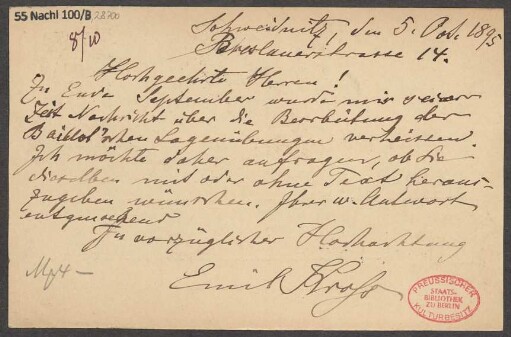 55 Nachl 100/B,
8/10
Schweidnitz, den 5. Oct. 1895
Breslauerstrasse 14.
Hochgeehrte Herren!
Zu Ende September wurde mir seiner
Zeit Nachricht über die Bearbeitung der
Baillot'schen Lagenübungen verheissen.
Ich möchte daher anfragen, ob Sie
dieselben mit oder ohne Text heraus-
zugeben wünschen. Ihrer w. Antwort
entgegensehend
In vorzüglicher Hochachtung
Emil Kross
PREUSSISCHER
STAATS-
BIBLIOTHEK
ZU BERLIN
KULTURBESITZ